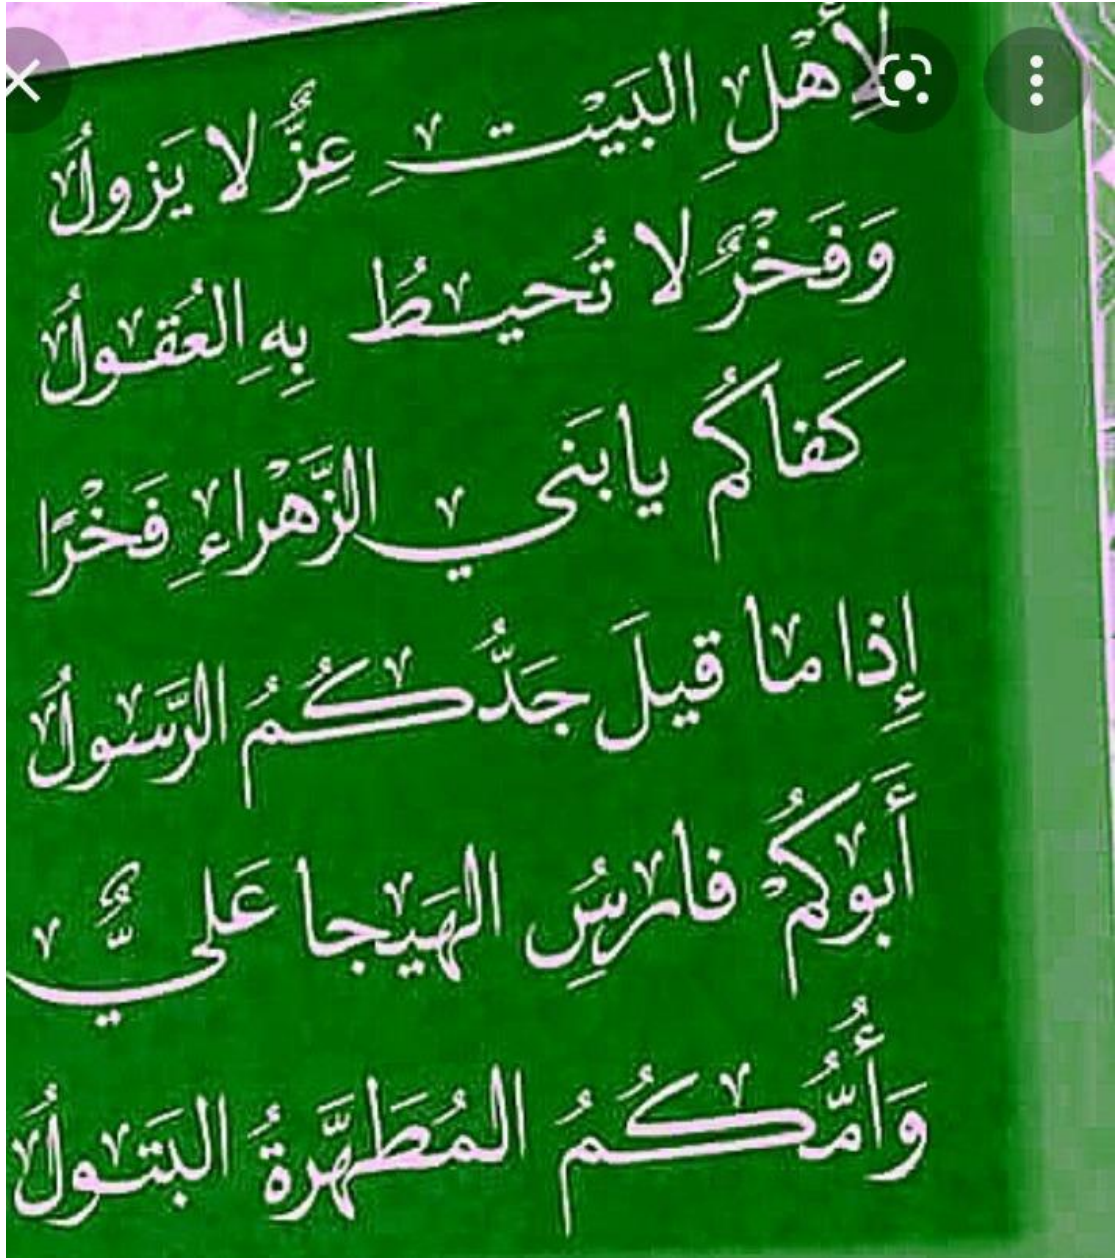 لِأَهْلِ البَيْتِ عِزٌّ لا يَزولُ
وَفَخْرٌ لا تُحيطُ بِهِ العُقولُ
كَفاكُم يا بَني الزَّهْراءِ فَخْرًا
إِذا ما قيلَ جَدُّكُمُ الرَّسولُ
أَبوكُمْ فارِسُ الهَيْجا عَليٌّ
وَأُمُّكُمُ المُطَهَّرَةُ البَتولُ